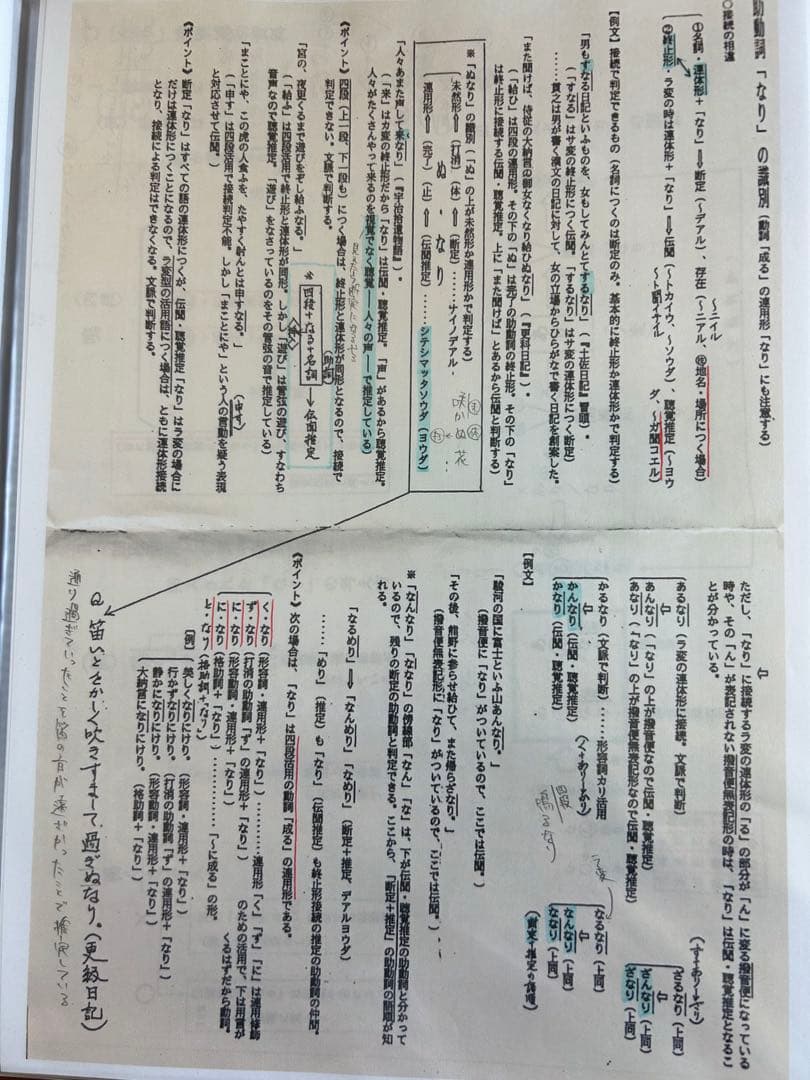 助動詞「なり」の識別（動詞「成る」の連用形「なり」にも注意する）
○接続の相違
①名詞・連体形＋「なり」⇒断定（～デアル）、存在（～ニアル、㊟地名・場所につく場合）
～ニイル
②終止形・ラ変の時は連体形＋「なり」⇒伝聞（～トカイウ、～ソウダ）、聴覚推定（～ヨウダ、～ガ聞コエル）
～ト聞イテイル
【例文】接続で判定できるもの（名詞につくのは断定のみ。基本的に終止形か連体形かで判定する）
「男もすなる日記といふものを、女もしてみんとてするなり」（『土佐日記』冒頭）。
（「すなる」はサ変の終止形につく伝聞。「するなり」はサ変の連体形につく断定）
……貫之は男が書く漢文の日記に対して、女の立場からひらがなで書く日記を創案した。
「また聞けば、侍従の大納言の御女なくなり給ひぬなり」（『更科日記』）。
（「給ひ」は四段の連用形。その下の「ぬ」は完了の助動詞の終止形。その下の「なり」
は終止形に接続する伝聞・聴覚推定。上に「また聞けば」とあるから伝聞と判断する）
※「ぬなり」の識別（「ぬ」の上が未然形か連用形かで判定する）
未然形⇐（打消）（体）⇐（断定）……ナイノデアル・
ぬ・なり
連用形⇐（完了）（止）⇐（伝聞推定）……シテシマッタソウダ（ヨウダ）
咲かぬ花
「人々あまた声して来なり」（『宇治拾遺物語』）。
（「来」はカ変の終止形だから「なり」は伝聞・聴覚推定。「声」があるから聴覚推定。
人々がたくさんやって来るのを視覚でなく聴覚――人々の声――で推定している）
《ポイント》四段（上一段、下一段も）につく場合は、終止形と連体形が同形となるので、接続で
判定できない。文脈で判断する。
※
四段＋なる＋名詞
（助詞）
→伝聞推定
「宮の、夜更くるまで遊びをぞし給ふなる。」
（「給ふ」は四段活用で終止形と連体形が同形。しかし「遊び」は管弦の遊び、すなわち
音声なので聴覚推定。「遊び」をなさっているのをその管弦の音で推定している）
「まことにや、この虎の人食ふを、たやすく射んとは申すなる。」
（「申す」は四段活用で接続判定不能。しかし「まことにや」という人の言動を疑う表現
と対応させて伝聞。）
《ポイント》断定「なり」はすべての語の連体形につくが、伝聞・聴覚推定「なり」はラ変の場合に
だけは連体形につくことになるので、ラ変型の活用語につく場合は、ともに連体形接続
となり、接続による判定はできなくなる。文脈で判断する。
ただし、「なり」に接続するラ変の連体形の「る」の部分が「ん」に変る撥音便になっている
時や、その「ん」が表記されない撥音便無表記形の時は、「なり」は伝聞・聴覚推定となるこ
とが分かっている。
あるなり（ラ変の連体形に接続。文脈で判断）
あんなり（「なり」の上が撥音便なので伝聞・聴覚推定）
あなり（「なり」の上が撥音便無表記形なので伝聞・聴覚推定）
ざるなり（上同）
ざんなり（上同）
ざなり（上同）
かるなり（文脈で判断）……形容詞カリ活用
かんなり（伝聞・聴覚推定）
かなり（伝聞・聴覚推定）
四段
鳴るなり
ラ変
なるなり（上同）
なんなり（上同）
ななり（上同）
【例文】
「駿河の国に富士といふ山あんなり。」
（撥音便に「なり」がついているので、ここでは伝聞。）
「その後、熊野に参らせ給ひて、また帰らざなり。」
（撥音便無表記形に「なり」がついているので、ここでは伝聞。）
※「なんなり」「ななり」の傍線部「なん」「な」は、下が伝聞・聴覚推定の助動詞と分かって
いるので、残りの断定の助動詞と判定できる。ここから、「断定＋推定」の助動詞の語順が知
れる。
「なるめり」⇒「なんめり」「なめり」（断定＋推定、デアルヨウダ）
……「めり」（推定）も「なり」（伝聞推定）も終止形接続の推定の助動詞の仲間。
《ポイント》次の場合は、「なり」は四段活用の動詞「成る」の連用形である。
く・なり（形容詞・連用形＋「なり」）…………連用形「く」「ず」「に」は連用修飾
ず・なり（打消の助動詞「ず」の連用形＋「なり」）のための活用で、下は用言が
に・なり（形容動詞・連用形＋「なり」）くるはずだから動詞。
に・なり（格助詞＋「なり」）……………「～に成る」の形。
と・なり（格助詞＋「なり」）
【例】
美しくなりにけり。（形容詞・連用形＋「なり」）
行かずなりにけり。（打消の助動詞「ず」の連用形＋「なり」）
静かになりにけり。（形容動詞・連用形＋「なり」）
大納言になりにけり。（格助詞＋「なり」）
Q 笛いとをかしく吹きすまして、過ぎぬなり。（更級日記）
通り過ぎていったことを笛の音が遠ざかったことで推定している